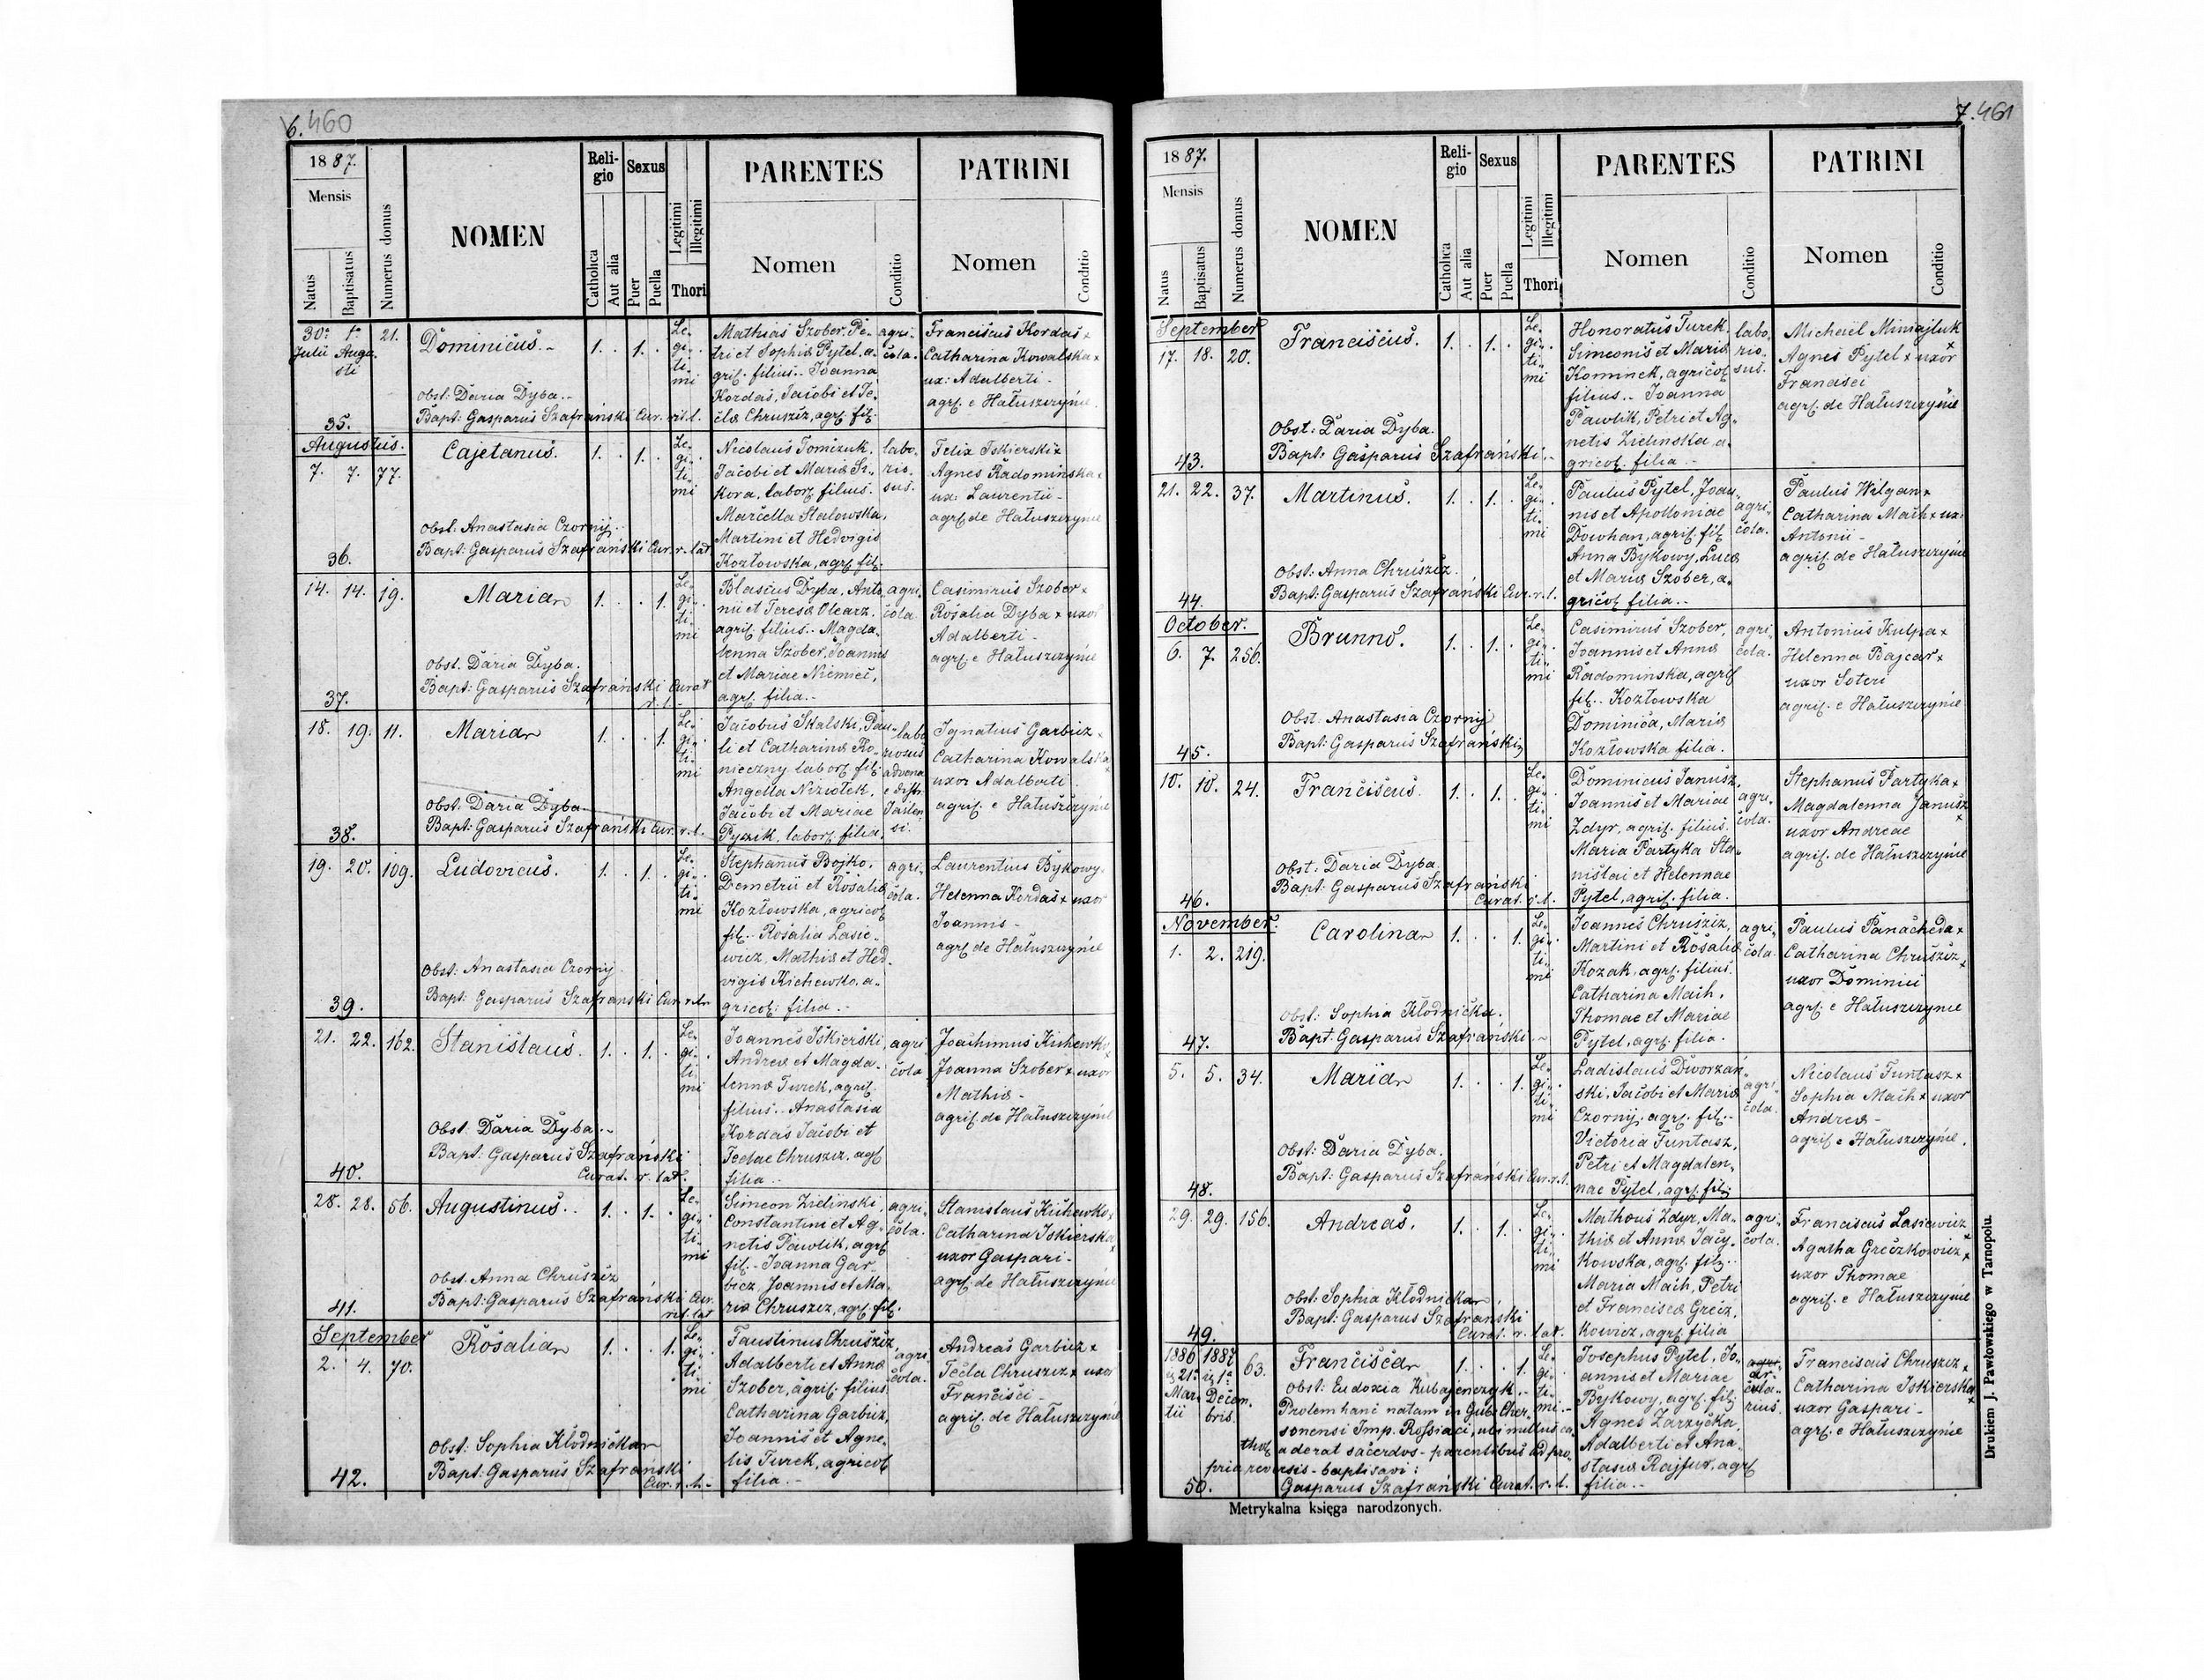 6. 460
1887.
Mensis
Natus
Baptisatus
Numerus domus
NOMEN
Reli-
gio
Catholica
Aut alia
Sexus
Puer
Puella
Legitimi
Illegitimi
Thori
PARENTES
Nomen
Conditio
PATRINI
Nomen
Conditio
30. 1. 21.
Julii Augu-
sti
35.
Dominicus.
Obst: Daria Dyba.
Bapt: Gasparus Szafrański Cur. rit. l.
1. . 1. .
Le-
gi-
ti-
mi
Mathias Szober, Pe-
tri et Sophiæ Pytel, a-
gric. filius. Joanna
Kordas, Jacobi et Te-
clæ Chruszcz, agr. fil.
agri-
cola.
Franciscus Kordas x
Catharina Kowalska x
ux: Adalberti -
agr. e Hałuszczyńce
Augustus.
7. 7. 77.
36.
Cajetanus.
Obst: Anastasia Czornij.
Bapt: Gasparus Szafrański Cur. r. lat
1. . 1. .
Le-
gi-
ti-
mi
Nicolaus Tomczuk,
Jacobi et Mariæ Si-
kora, labor. filius.
Marcella Stalowska,
Martini et Hedvigis
Kozłowska, agr. fil.
labo-
rio-
sus.
Felix Iskierski x
Agnes Radomińska x
ux: Laurentii -
agr. de Hałuszczyńce
14. 14. 19.
37.
Maria
Obst. Daria Dyba.
Bapt: Gasparus Szafrański Curat
r. l. -
1. . . 1.
Le-
gi-
ti-
mi
Blasius Dyba, Anto-
nii et Teresæ Olearz.
agric. filius. Magda-
lenna Szober, Joannis
et Mariae Niemiec,
agr. filia.
agri-
cola
Casimirus Szober x
Rosalia Dyba x uxor
Adalberti -
agr. e Hałuszczyńce
18. 19. 11.
38.
Maria
Obst. Daria Dyba.
Bapt: Gasparus Szafrański Cur. r. l.
1. . . 1.
Le-
gi-
ti-
mi
Jacobus Skalski, Pau-
li et Catharinæ Ko-
nieczny labor. fil.
Angella Niziołek,
Jacobi et Mariae
Pyzik, labor. filia
labo-
riosus
advena
e distr.
Jaslen-
si.
Ignatius Garbicz x
Catharina Kowalska x
uxor Adalberti
agric. e Hałuszczyńce
19. 20. 109.
39.
Ludovicus.
Obst: Anastasia Czornij
Bapt: Gasparus Szafrański Cur. r. l.
1. . 1. .
Le-
gi-
ti-
mi
Stephanus Bojko,
Demetrii et Rosaliæ
Kozłowska, agricol.
fil. Rosalia Lasie-
wicz, Mathiæ et Hed-
vigis Kichewko, a-
gricol: filia.
agri-
cola.
Laurentius Bykowy
Helenna Kordas x uxor
Joannis -
agr. de Hałuszczyńce
21. 22. 162.
40.
Stanislaus.
Obst. Daria Dyba.
Bapt: Gasparus Szafrański
Curat. r. lat.
1. . 1. .
Le-
gi-
ti-
mi
Joannes Iskierski,
Andreæ et Magda-
lennæ Turek, agric.
filius. Anastasia
Kordas Jacobi et
Teclae Chruszcz. agr.
filia.
agri
cola
Joachimus Kichewko x
Joanna Szober x uxor
Mathiæ -
agric. de Hałuszczyńce
28. 28. 56.
41.
Augustinus.
Obst. Anna Chruszcz
Bapt: Gasparus Szafrański Cur.
rit. lat
1. . 1. .
Le-
gi-
ti-
mi
Simeon Zielinski,
Constantini et Ag-
netis Pawlik, agr.
fil. Joanna Gar-
bicz Joannis et Ma-
riæ Chruszcz, agr. fil.
agri-
cola.
Stanislaus Kichewko x
Catharina Iskierska x
uxor Gaspari -
agr. de Hałuszczyńce
September
2. 4. 70.
42.
Rosalia
Obst: Sophia Kłodnicka
Bapt: Gasparus Szafrański
Cur. r. l. -
1. . . 1.
Le-
gi-
ti-
mi
Faustinus Chruszcz
Adalberti et Annæ
Szober, agric. filius.
Catharina Garbicz,
Joannis et Agne-
tis Turek, agricol.
filia. -
agri-
cola.
Andreas Garbicz x
Tecla Chruszcz x uxor
Francisci -
agric. de Hałuszczyńce
7. 461
1887.
Mensis
Natus
Baptisatus
Numerus domus
NOMEN
Reli-
gio
Catholica
Aut alia
Sexus
Puer
Puella
Legitimi
Illegitimi
Thori
PARENTES
Nomen
Conditio
PATRINI
Nomen
Conditio
September
17. 18. 20.
43.
Franciscus.
Obst: Daria Dyba.
Bapt: Gasparus Szafrański. -
1. . 1. .
Le-
gi-
ti-
mi
Honoratus Turek,
Simeonis et Mariæ
Kominek, agricol.
filius. Joanna
Pawlik, Petri et Ag-
netis Zielinska, a-
gricol. filia -
labo-
rio-
sus.
Michael Miniajluk x
Agnes Pytel x uxor
Francisci
agr. de Hałuszczyńce
21. 22. 37.
44.
Martinus.
Obst: Anna Chruszcz.
Bapt: Gasparus Szafrański Cur. r. l.
1. . 1. .
Le-
gi-
ti-
mi
Paulus Pytel, Joan-
nis et Apolloniae
Dowhan, agric. fil.
Anna Bykowy, Lucæ
et Mariæ Szober, a-
gricol. filia.
agri-
cola.
Paulus Wilgan x
Catharina Mach x ux:
Antonii -
agric. de Hałuszczyńce
October.
6. 7. 256.
45.
Brunno.
Obst: Anastasia Czornij
Bapt: Gasparus Szafrański
1. . 1. .
Le-
gi-
ti-
mi
Casimirus Szober,
Joannis et Annæ
Radominska, agric.
fil. Kozłowska
Dominica, Mariæ
Kozłowska filia.
agri-
cola.
Antonius Kulpa x
Helenna Bajcar x
uxor Soteri
agric. e Hałuszczyńce
10. 10. 24.
46.
Franciscus.
Obst: Daria Dyba.
Bapt: Gasparus Szafrański
Curat. r. l.
1. . 1. .
Le-
gi-
ti-
mi
Dominicus Janusz,
Joannis et Mariae
Zdyr, agric. filius.
Maria Partyka Sta-
nislai et Helennae
Pytel, agric. filia.
agri-
cola.
Stephanus Partyka x
Magdalenna Janusz x
uxor Andreae
agric. de Hałuszczyńce
November.
1. 2. 219.
47.
Carolina
Obst: Sophia Kłodnicka.
Bapt: Gasparus Szafrański -
1. . . 1.
Le-
gi-
ti-
mi
Joannes Chruszcz,
Martini et Rosaliæ
Kozak, agr. filius.
Catharina Mach,
Thomae et Mariae
Pytel, agr. filia.
agri-
cola.
Paulus Panacheda x
Catharina Chruszcz x
uxor Dominici
agr. e Hałuszczyńce
5. 5. 34.
48.
Maria
Obst: Daria Dyba.
Bapt: Gasparus Szafrański Cur. r. l.
1. . . 1.
Le-
gi-
ti-
mi
Ladislaus Dworzań-
ski, Jacobi et Mariæ
Czornij, agr. fil.
Victoria Funtasz,
Petri et Magdalen-
nae Pytel, agr. fil.
agri-
cola.
Nicolaus Funtasz x
Sophia Mach x uxor
Andreæ -
agric. e Hałuszczyńce.
29. 29. 156.
49.
Andreas.
Obst: Sophia Kłodnicka
Bapt: Gasparus Szafrański
Curat. r. lat.
1. . 1. .
Le-
gi-
ti-
mi
Matheus Zdyr, Ma-
thiæ et Annæ Jacy-
kowska, agr. fil.
Maria Mach, Petri
et Franciscæ Grecz-
kowicz, agr. filia
agri-
cola.
Franciscus Lasiewicz x
Agatha Greczkowicz x
uxor Thomae
agric. e Hałuszczyńce
1886 1887 63.
21. 1.
Mar- Decem-
tii bris.
50.
Francisca
Obst: Eudoxia Kubajenczyk.
Prolem hanc natam in Gub. Cher-
sonensi Imp. Rossiaci, ubi nullus ca-
thol. aderat sacerdos - parentibus ad pro-
pria reversis - baptisavi:
Gasparus Szafrański Curat. r. l.
1. . . 1.
Le-
gi-
ti-
mi -
Josephus Pytel, Jo-
annis et Mariae
Bykowy, agr. fil.
Agnes Zarzycka,
Adalberti et Ana-
stasiæ Rajfur, agr.
filia.
Franciscus Chruszcz x
Catharina Iskierska x
uxor Gaspari -
agr. e Hałuszczyńce
Metrykalna księga narodzonych.
Drukiem J. Pawłowskiego w Tarnopolu.